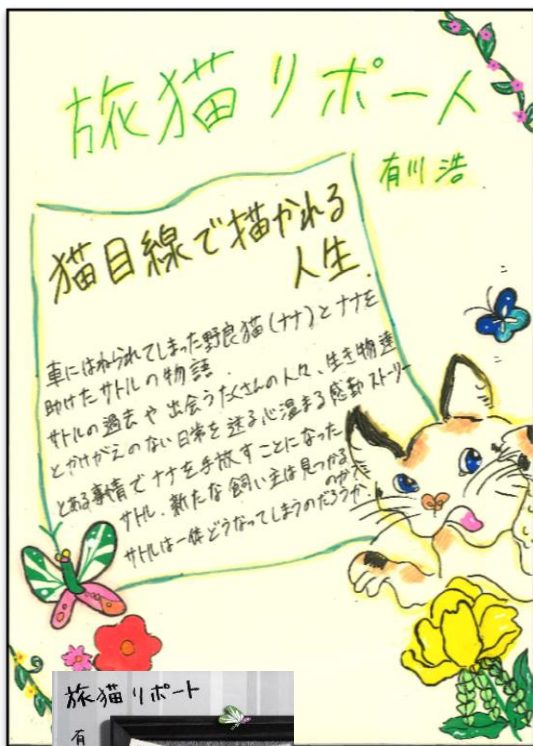 旅猫リポート
有川浩
猫目線で描かれる
人生.
車にはねられてしまった野良猫(ナナ)とナナを
助けたサトルの物語.
サトルの過去や出会うたくさんの人々、生き物達
とかけがえのない日常を送る心温まる感動ストーリー
とある事情でナナを手放すことになった
サトル.新たな飼い主は見つかる
のか?
サトルは一体どうなってしまうのだろうか.
旅猫リポート
有